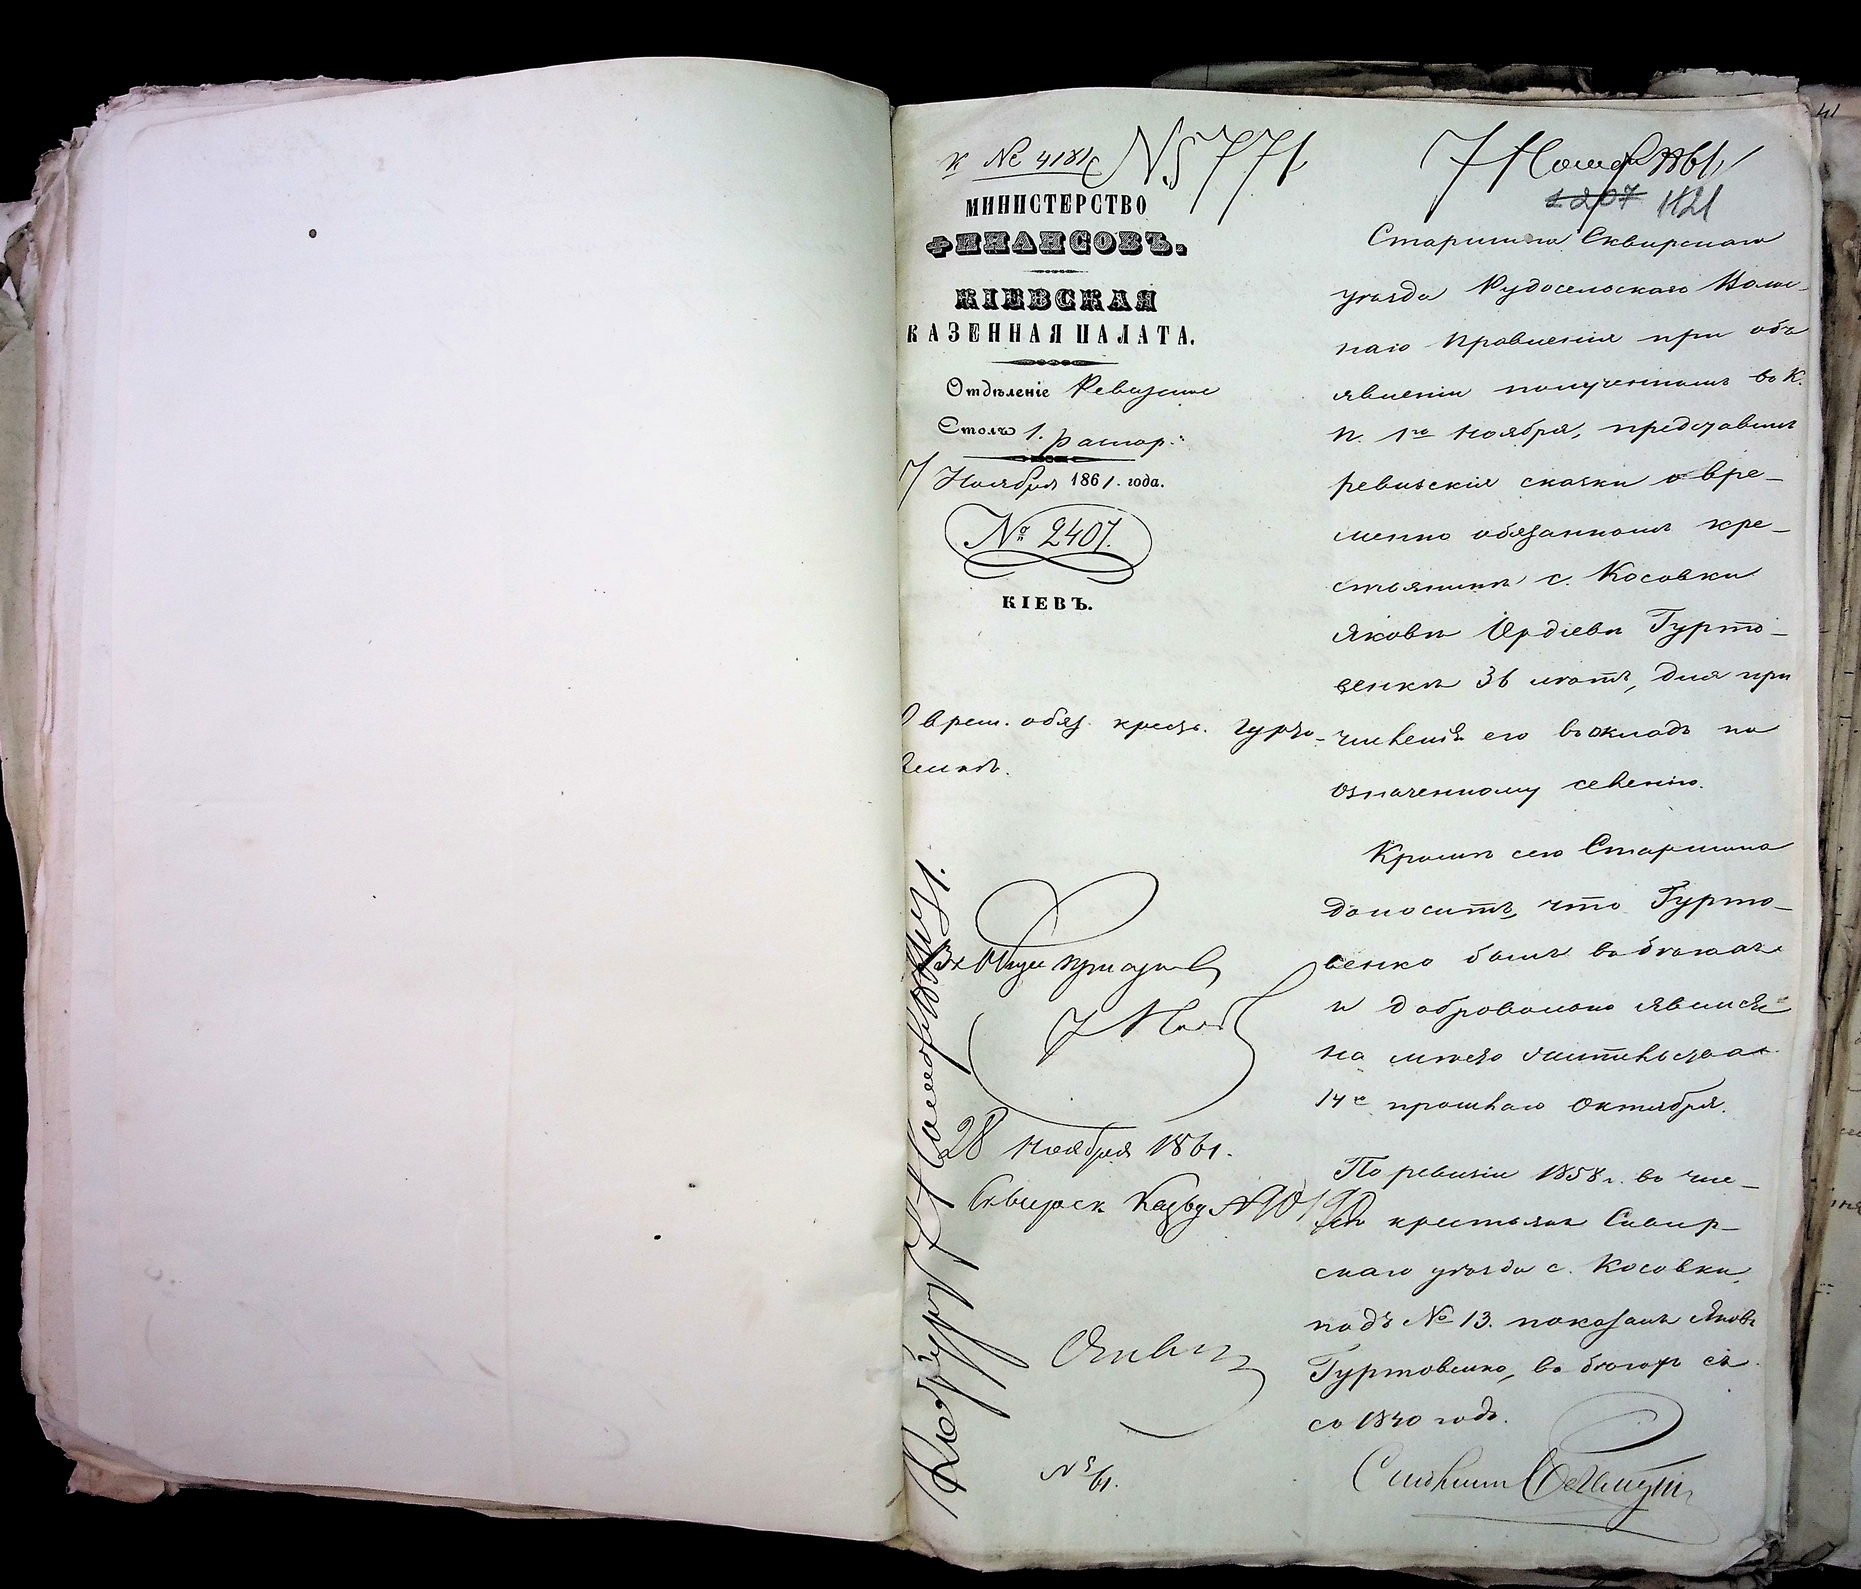 к № 4181
№ 771
7 Ноября 1861
2207 1121
МИНИСТЕРСТВО
ФИНАНСОВЪ.
КІЕВСКАЯ
КАЗЕННАЯ ПАЛАТА.
Отдѣленіе Ревизское
Столъ 1.
7 Ноября 1861. года.
№ 2407.
КІЕВЪ.
О врем. обяз. крест. Гурто-
венкѣ.
28 Ноября 1861.
Сквирск Казнач №
Старшина Сквирскаго
уѣзда Рудосельскаго Волос-
наго Правленія при объ
явленіи полученномъ въ К.
П. 1го Ноября, представилъ
ревизскія сказки о вре-
менно обязанномъ кре-
стьянинѣ с. Косовки
Яковѣ Гурто-
венкѣ 36 лѣтъ, для при
численія его въ окладъ по
означенному селенію.
Кромѣ сего Старшина
доноситъ, что Гурто-
венко былъ въ бѣгахъ
и добровольно явился
на мѣсто жительства
14го прошлаго Октября.
По ревизіи 1858 г. въ чис-
лѣ крестьянъ Сквир-
скаго уѣзда с. Косовки,
подъ № 13. показанъ Яковъ
Гуртовенко, въ бѣгахъ съ
съ 1840 года.